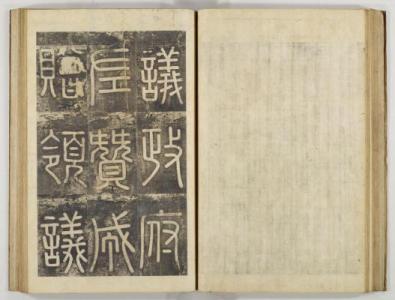 議政府
左贊成
贈領議